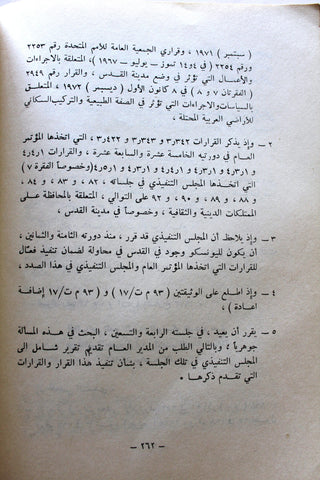 ( سبتمبر ) ١٩٧١ ، وقراري الجمعية العامة للأمم المتحدة رقم ٢٢٥٣
ورقم ٢٢٥٤ ( في ٤ و ١٤ تموز – يوليو – ١٩٦٧ )، المتعلقة بالاجراءات
والأعمال التي تؤثر في وضع مدينة القدس ، والقرار رقم ٢٩٤٩
( الفقرتان ٧ و ٨ في ٨ كانون الأول ( ديسمبر ) ١٩٧٢ ، المتعلق
بالسياسات والاجراءات التي تؤثر في الصفة الطبيعية والتركيب السكاني
للأراضي العربية المحتلة ،
٢ – وإذ يذكر القرارات ٣ر٣٤٢ و ٣ر٣٤٣ و ٣ر٤٢٢ ، التي اتخذها المؤتمر
العام في دورتيه الخامسة عشرة والسابعة عشرة ، والقرارات
( وخصوصاً الفقرة ٧ )
التي اتخذها المجلس التنفيذي في جلساته ، ٨٢ ، و ٨٣ ، و ٨٤ ،
و ٨٨ ، و ٨٩ ، و ٩٠ ، و ٩٢ على التوالي ، المتعلقة بالمحافظة على
الممتلكات الدينية والثقافية ، وخصوصاً في مدينة القدس ،
٣ – وإذ يلاحظ أن المجلس التنفيذي قد قرر ، منذ دورته الثامنة والثمانين ،
أن يكون لليونسكو وجود في القدس في محاولة لضمان تنفيذ فعّال
للقرارات التي اتخذها المؤتمر العام والمجلس التنفيذي في هذا الصدد ،
٤ – وإذ اطلع على الوثيقتين ( ٩٣ م ت/١٧ ) و ( ٩٣ م ت/١٧ إضافة
اعادة ) ،
٥ – يقرر أن يعيد ، في جلسته الرابعة والتسعين ، البحث في هذه المسألة
جوهرياً ؛ وبالتالي الطلب من المدير العام تقديم تقرير شامل الى
المجلس التنفيذي في تلك الجلسة ، بشأن تنفيذ هذا القرار والقرارات
التي تقدم ذكرها .
– ٢٦٢ –